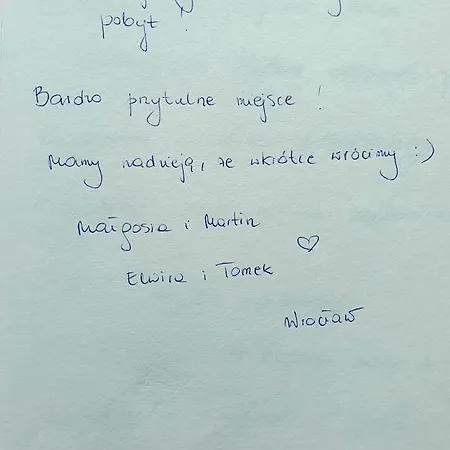 pobyt !
Bardzo przytulne miejsce !
Mamy nadzieję, że wkrótce wrócimy :)
Małgosia i Martin
Elwira i Tomek
Wrocław